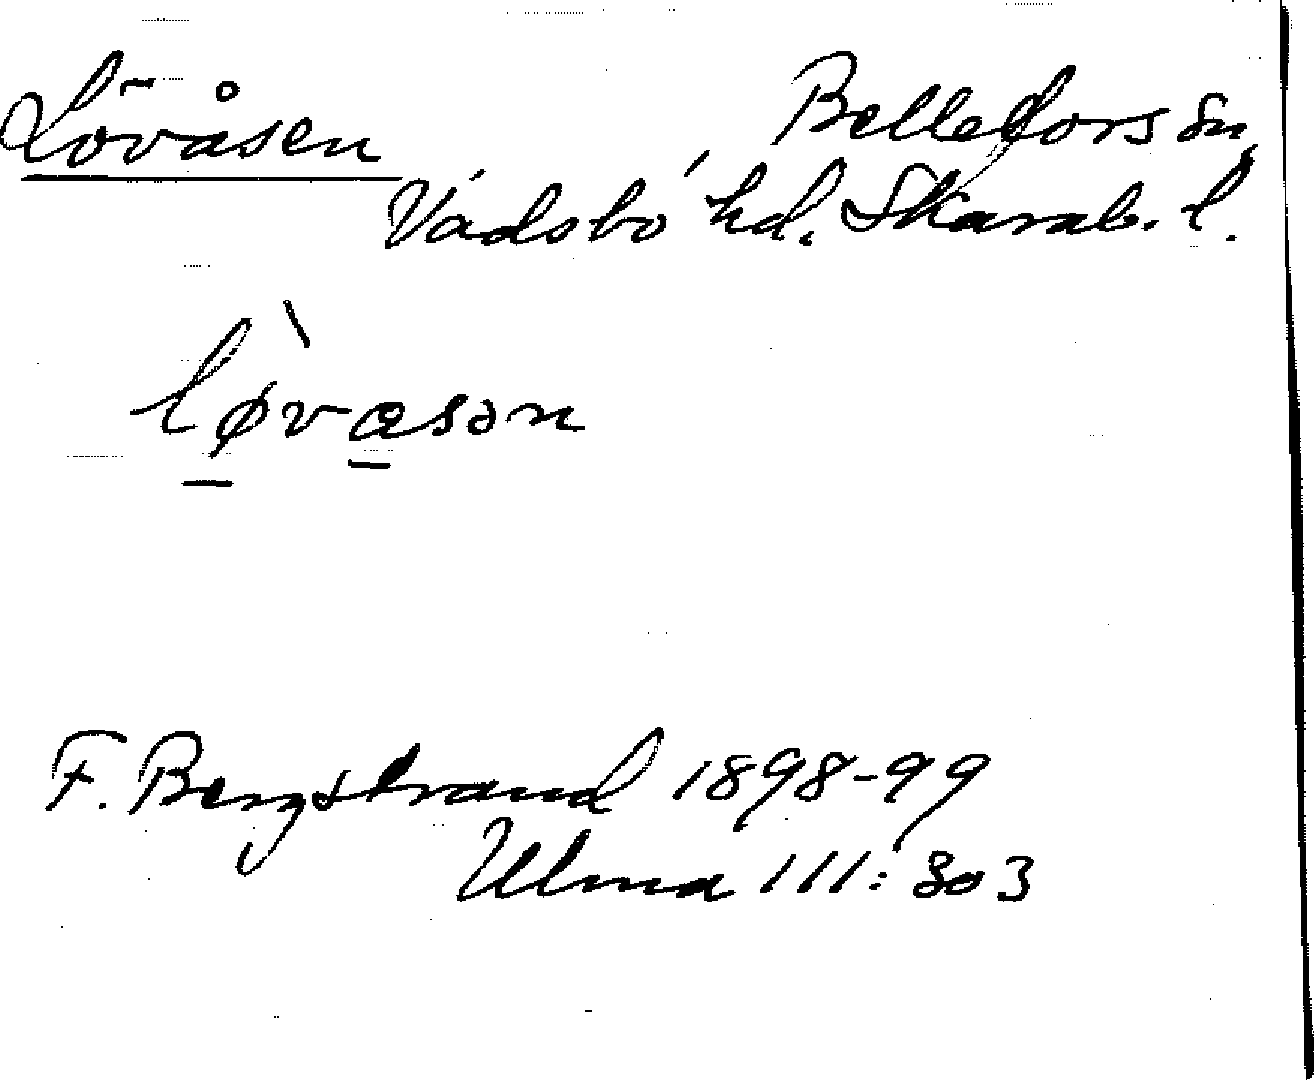 Lövåsen
Bellefors sn,
Vadsbo hd. Skarab. l.
lø̱̀va̱sən
F. Bergstrand 1898-99
Ulma 111:803